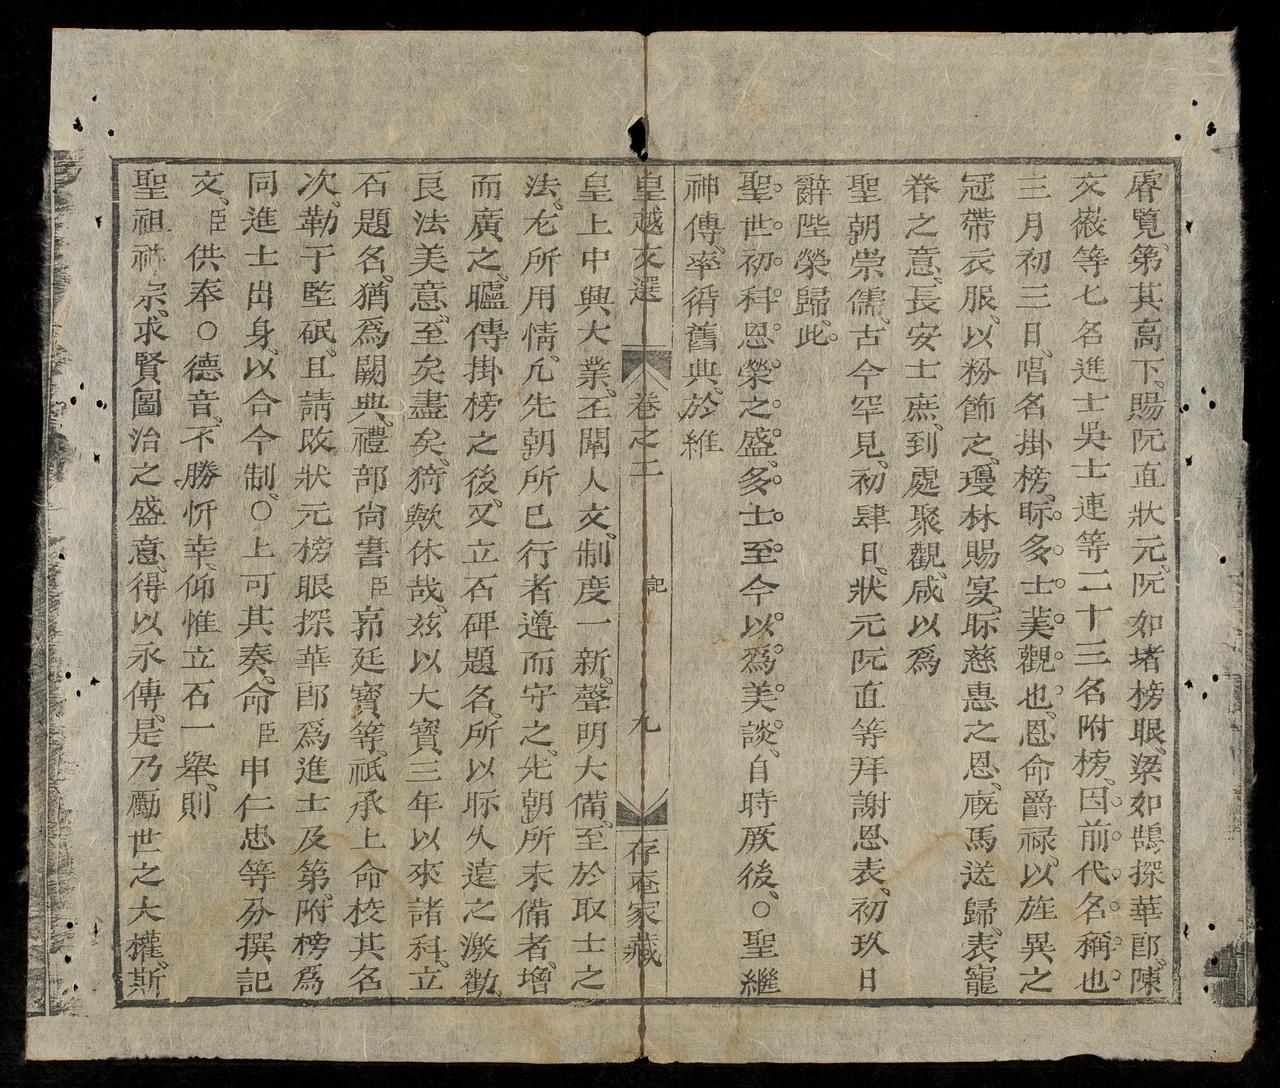 睿覽、第其高下、賜阮直狀元、阮如堵榜眼、梁如鵠探華郎、陳
文徽等七名進士吳士連等二十三名附榜、因前代名稱也
三月初三日、唱名掛榜、眎多士美觀也、恩命爵祿、以旌異之
冠帶衣服、以粉飾之、瓊林賜宴、眎慈惠之恩、廐馬送歸、表寵
眷之意、長安士庶、到處聚觀、咸以爲
聖朝崇儒、古今罕見、初肆日、狀元阮直等拜謝恩表、初玖日
辭陛榮歸、此
聖世初科、恩榮之盛、多士至今以爲美談、自時厥後、○聖繼
神傳、率循舊典、於維
皇越文選 卷之二 記 九 存庵家藏
皇上中興大業、丕闡人文、制度一新、聲明大備、至於取士之
法、尤所用情、凡先朝所已行者遵而守之、先朝所未備者、增
而廣之、臚傳掛榜之後、又立石碑題名、所以眎久遠之激勸、
良法美意、至矣盡矣、猗歟休哉、玆以大寶三年以來諸科、立
石題名、猶爲闕典、禮部尙書臣郭廷寶等、祇承上命校其名
次、勒于堅珉、且請改狀元榜眼探華郎爲進士及第、附榜爲
同進士出身、以合今制、○上可其奏、命臣申仁忠等分撰、記
文、臣供奉○德音、不勝忻幸、仰惟立石一舉、則
聖祖神宗、求賢圖治之盛意、得以永傳、是乃勵世之大權、斯